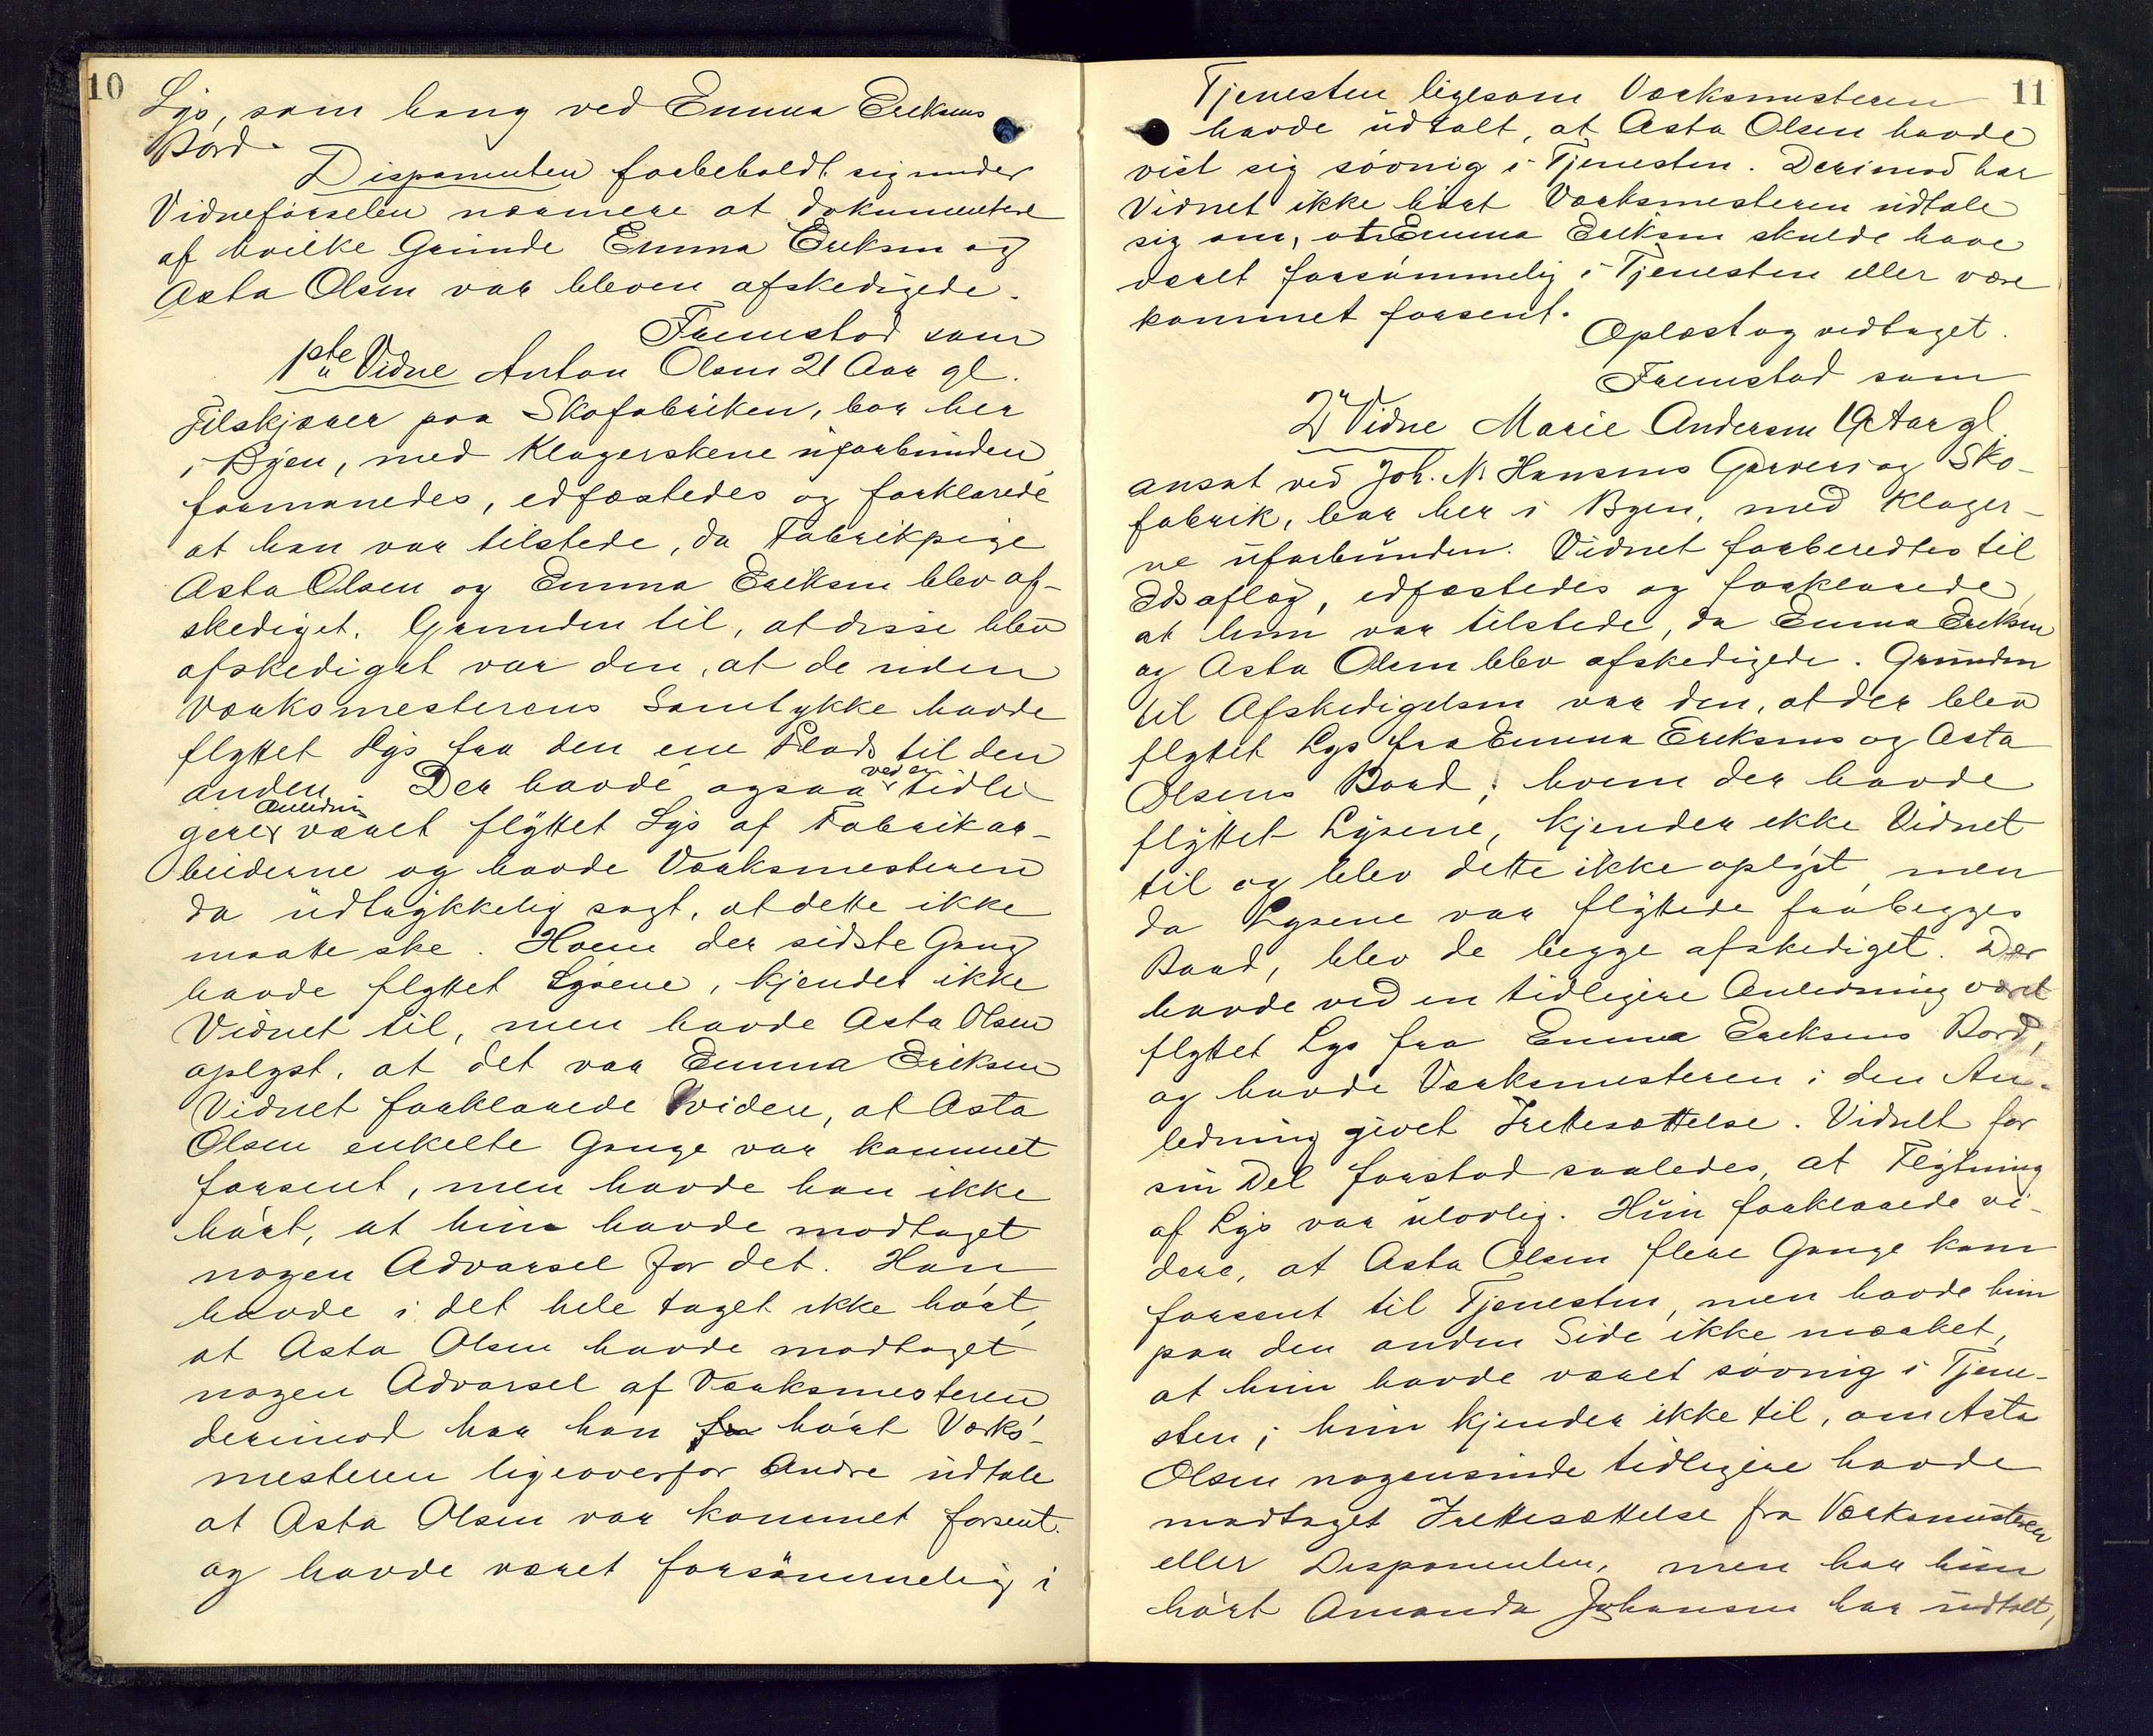 10
Lys, som hang ved Emma Eriksens
Bord.
Disponenten forbeholdt sig under
Vidneførselen nærmere at dokumentere
af hvilke Grunde Emma Eriksen og
Asta Olsen var bleven afskedigede.
Fremstod som
1ste Vidne Anton Olsen 21 Aar gl.
Tilskjærer paa Skofabriken, bor her
i Byen, med Klagerskene uforbunden
formanedes, edfæstedes og forklarede
at han var tilstede, da Fabrikpige
Asta Olsen og Emma Eriksen blev af-
skediget. Grunden til, at disse blev
afskediget var den, at de uden
Værksmesterens Samtykke havde
flyttet Lys fra den ene Plads til den
anden. Der havde ogsaa ved en tidli
gere Anledning været flyttet Lys af Fabrikar-
beiderne og havde Værksmesteren
da udtrykkelig sagt, at dette ikke
maatte ske. Hvem der sidste Gang
havde flyttet Lysene, kjendes ikke
Vidnet til, men havde Asta Olsen
oplyst, at det var Emma Eriksen
Vidnet forklarede videre, at Asta
Olsen enkelte Gange var kommet
forsent, men havde han ikke
hørt, at hun havde modtaget
nogen Advarsel for det. Han
havde i det hele taget ikke hørt,
at Asta Olsen havde modtaget
nogen Advarsel af Værksmesteren
derimod har han hørt Værks-
mesteren ligeoverfor Andre udtale
at Asta Olsen var kommet forsent.
og havde været forsømmelig i
11
Tjenesten ligesom Værksmesteren
havde udtalt, at Asta Olsen havde
vist sig søvnig i Tjenesten. Derimod har
Vidnet ikke hørt Værksmesteren udtale
sig om, at Emma Eriksen skulde have
været forsømmelig i Tjenesten eller være
kommet forsent.
Oplæst og vedtaget.
Fremstod som
2. Vidne Marie Andersen 19 Aar gl.
ansat ved Joh. N. Hansens Garveri og Sko-
fabrik, bor her i Byen, med Klager-
ne uforbunden. Vidnet forberedtes til
Eds aflæg, edfæstedes og forklarede,
at hun var tilstede, da Emma Eriksen
og Asta Olsen blev afskedigede. Grunden
til Afskedigelsen var den, at der blev
flyttet Lys fra Emma Eriksens og Asta
Olsens Bord; hvem der havde
flyttet Lysene, kjender ikke Vidnet
til og blev dette ikke oplyst, men
da Lysene var flyttede fra begges
Bord, blev de begge afskediget. Der
havde ved en tidligere Anledning været
flyttet Lys fra Emma Eriksens Bord,
og havde Værksmesteren i den An-
ledning givet Irettesættelse. Vidnet for
sin Del forstod saaledes, at Flytning
af Lys var ulovlig. Hun forklarede vi-
dere, at Asta Olsen flere Gange kom
forsent til Tjenesten, men havde hun
paa den anden Side ikke mærket,
at hun havde været søvnig i Tjene-
sten; hun kjender ikke til, om Asta
Olsen nogensinde tidligere havde
modtaget Irettesættelse fra Værksmesteren
eller Disponenten, men har hun
hørt Amanda Johansen har udtalt,